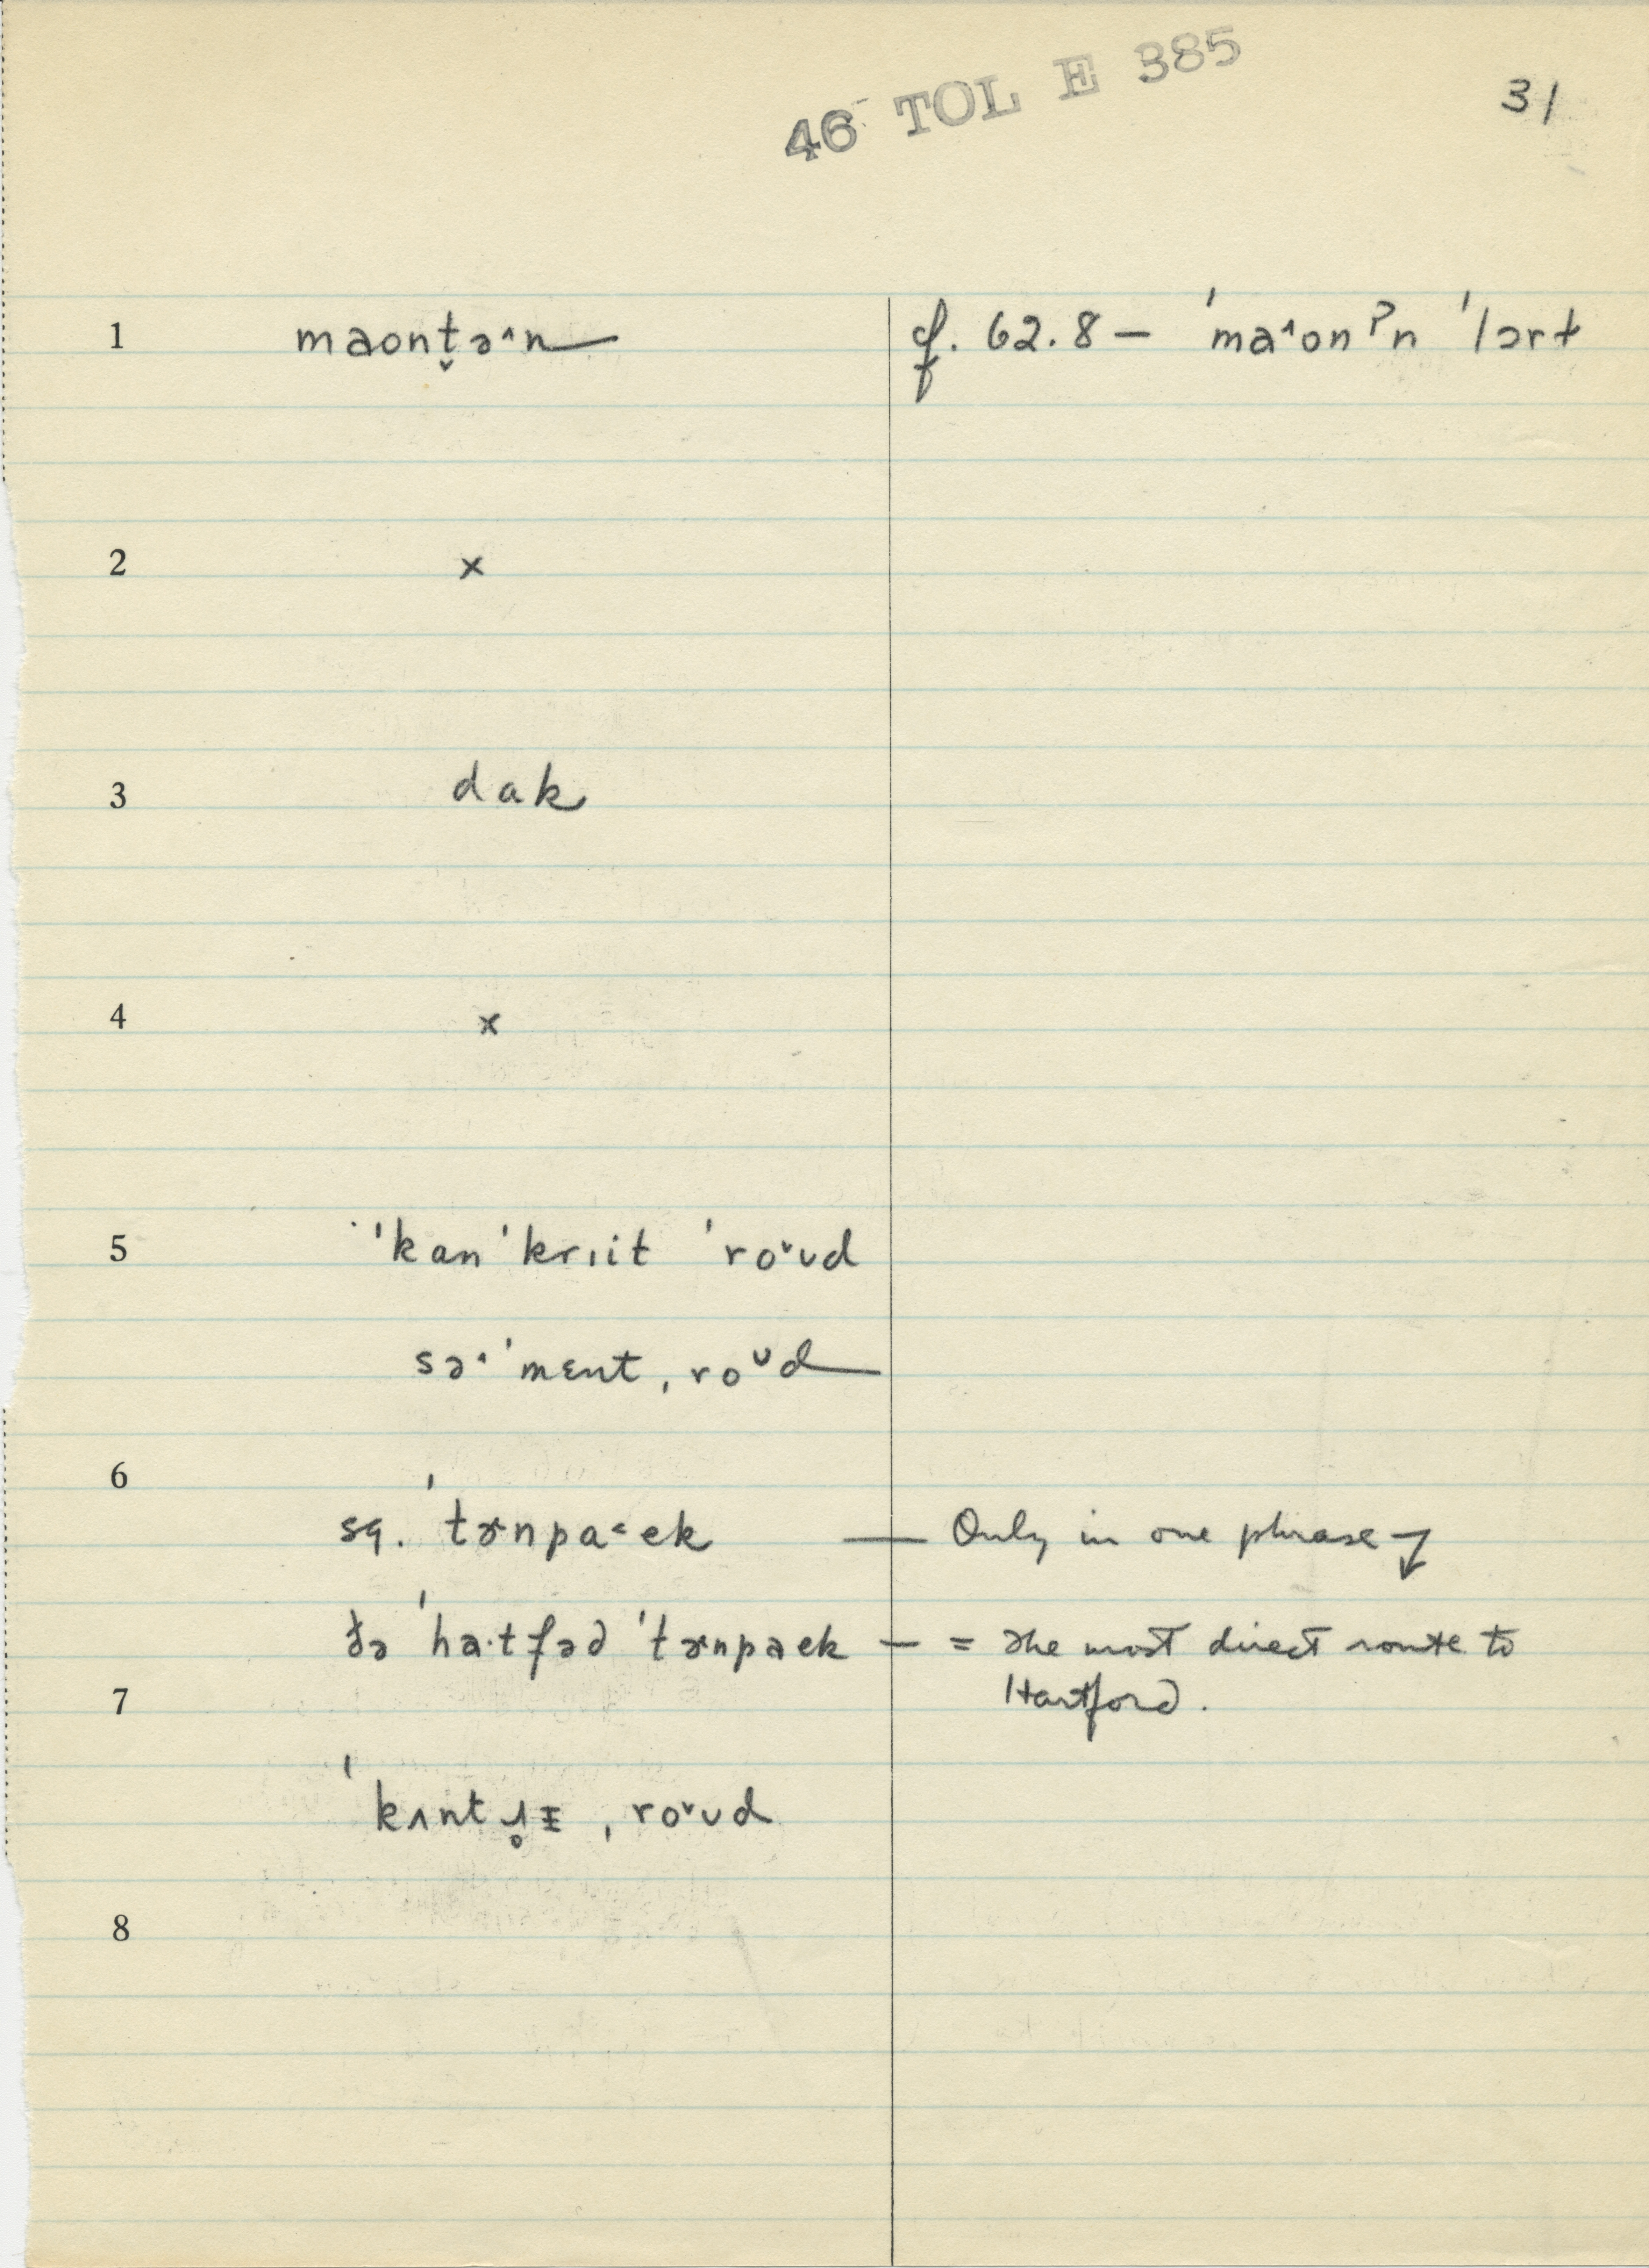 46 TOL E 385
31
1 maont̬əˆn cf. 62.8 — ˈmaˆonˀn ˈlɔrt
2 x
3 dak
4 x
5 ˈkanˈkrɪit ˈroˇʊd
səˆˈmɛnt ˌroᵘd
6
sq. ˈtɚnpa˂ek — Only in one phrase ↓
ðə ˈha·tfəd ˈtɚnpaek — = the most direct route to
7 Hartford.
ˈkʌntɹ̥ɪ ˌroˇʊd
8